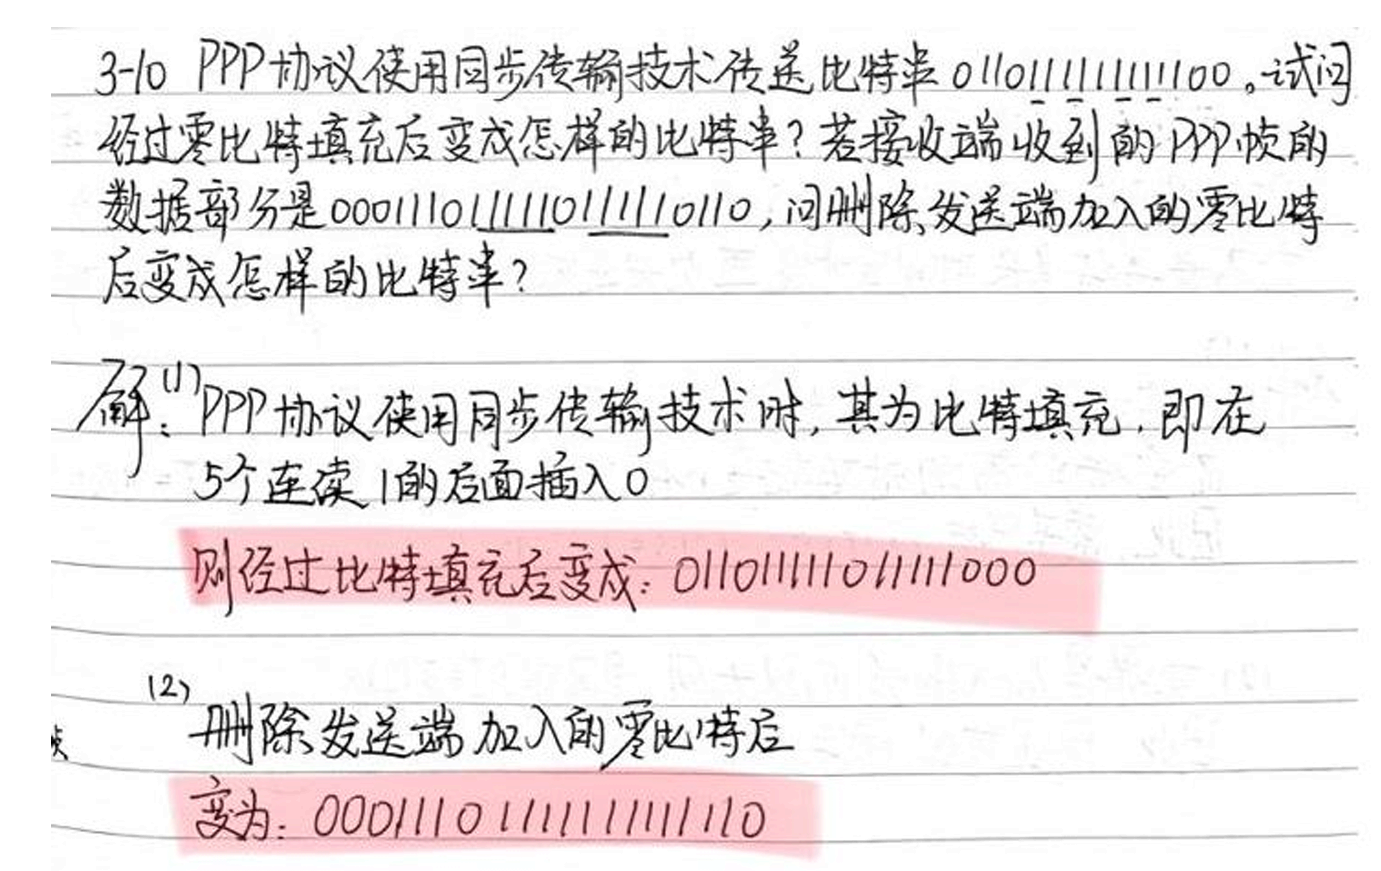 3-10 PPP协议使用同步传输技术传送比特串0110111111111100。试问
经过零比特填充后变成怎样的比特串?若接收端收到的PPP帧的
数据部分是0001110111110111110110,问删除发送端加入的零比特
后变成怎样的比特串?
解:(1)PPP协议使用同步传输技术时,其为比特填充,即在
5个连续1的后面插入0
则经过比特填充后变成:011011111011111000
(2)删除发送端加入的零比特后
变为:00011101111111111110